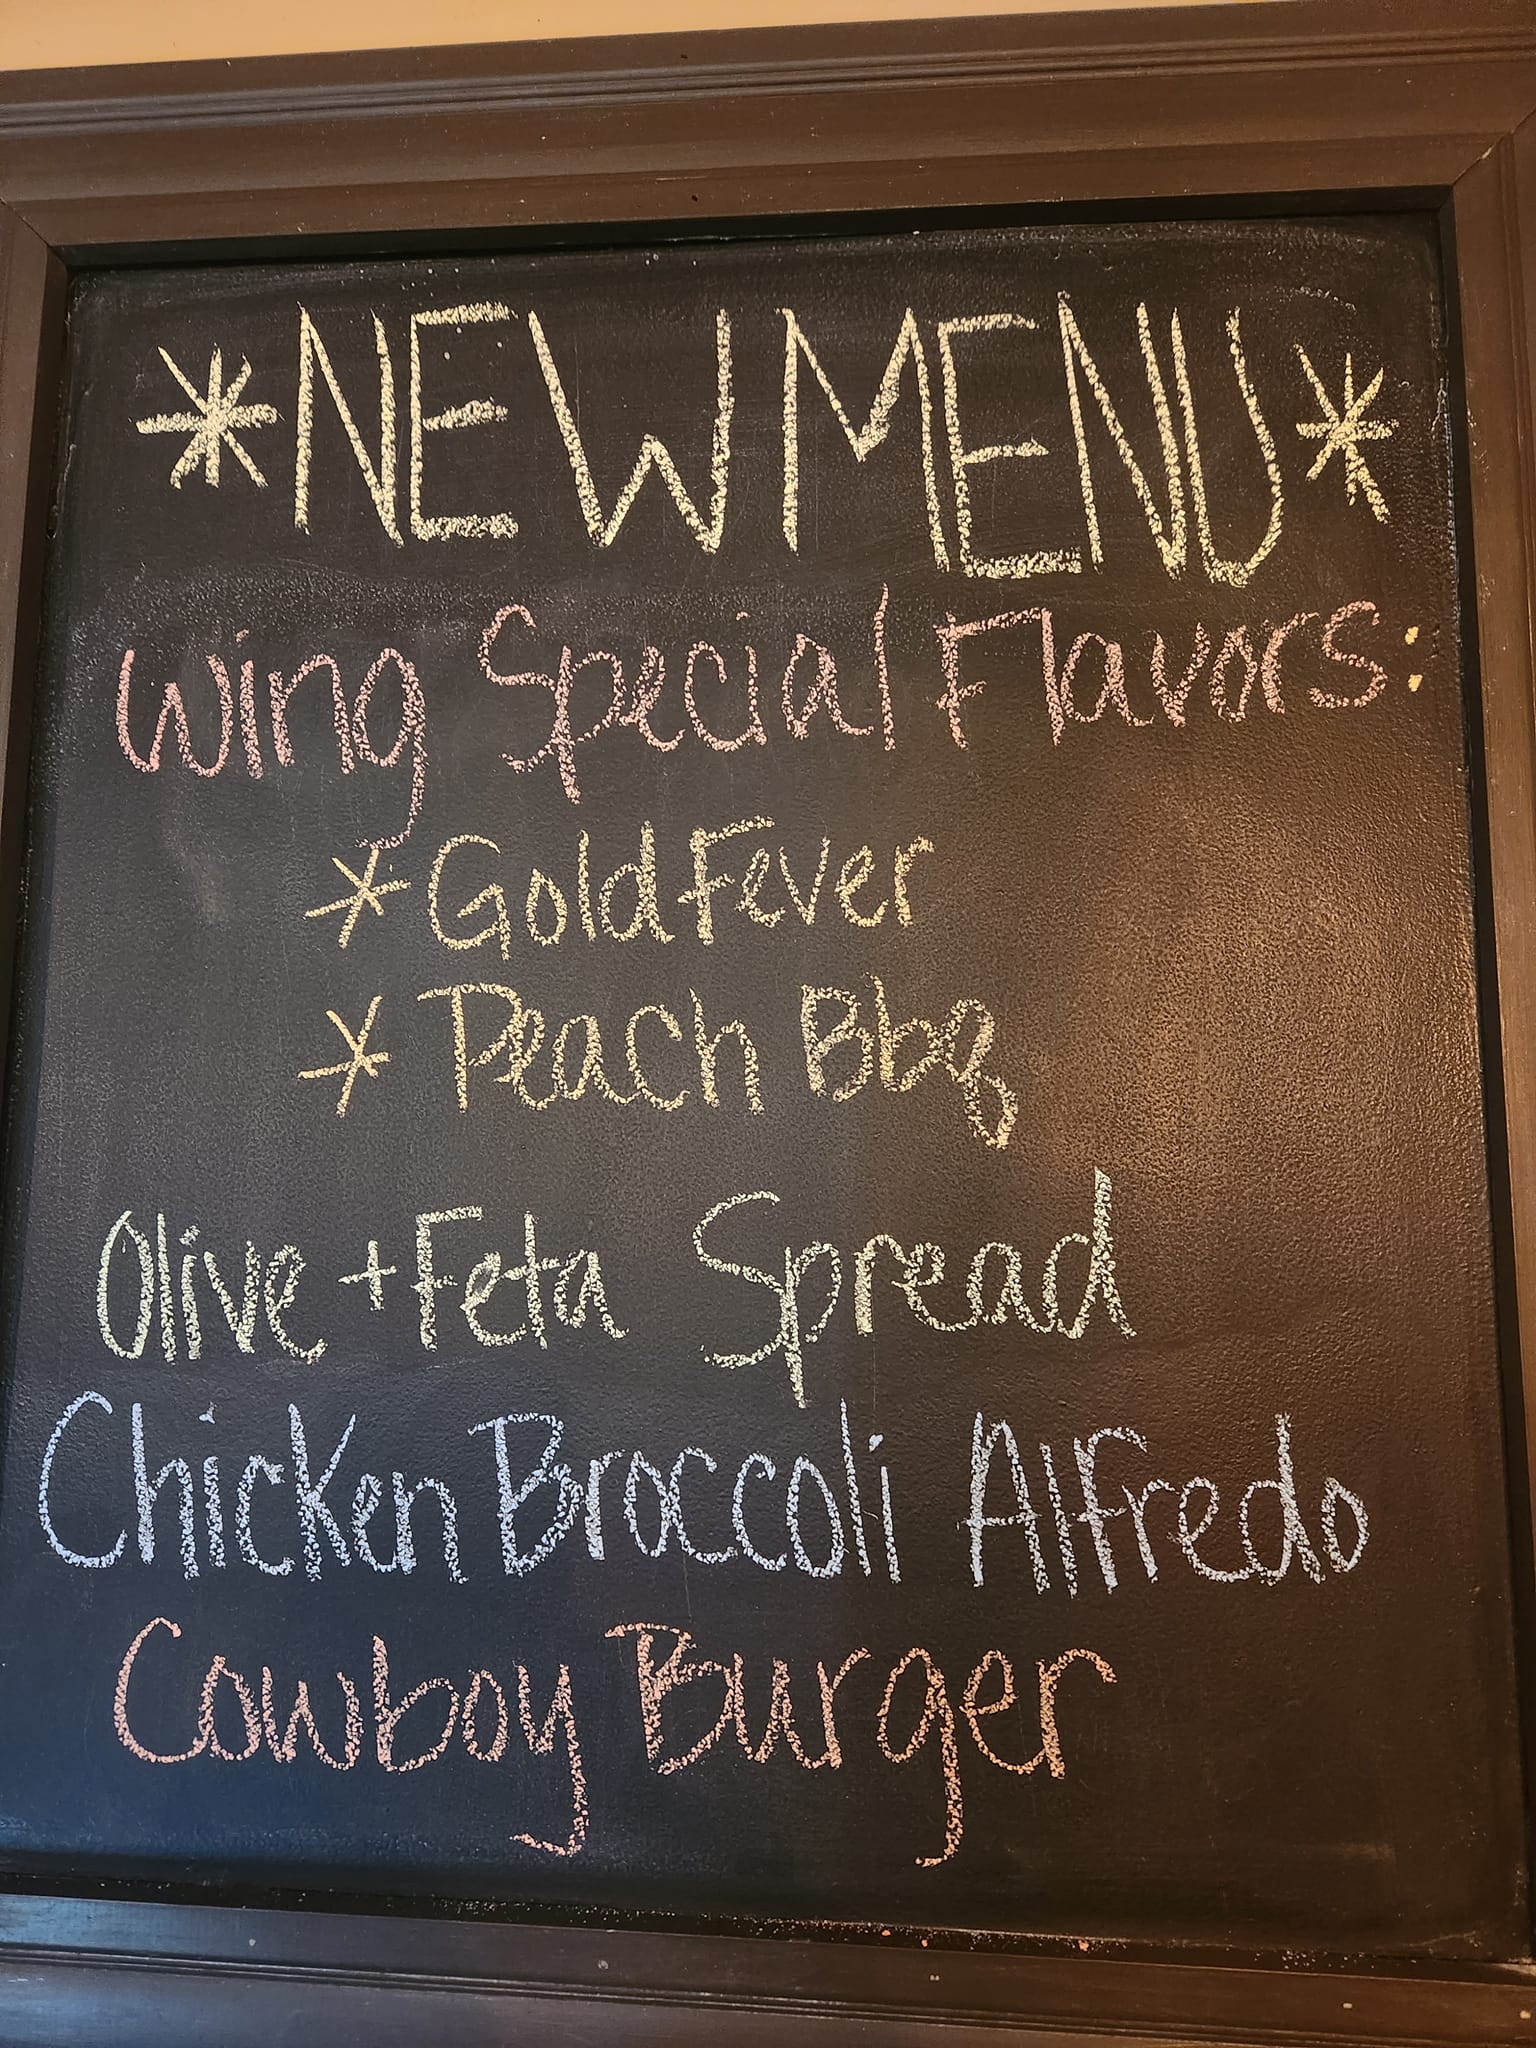 *NEW MENU*
Wing Special Flavors:
* Gold Fever
* Peach Bbq
Olive + Feta Spread
Chicken Broccoli Alfredo
Cowboy Burger